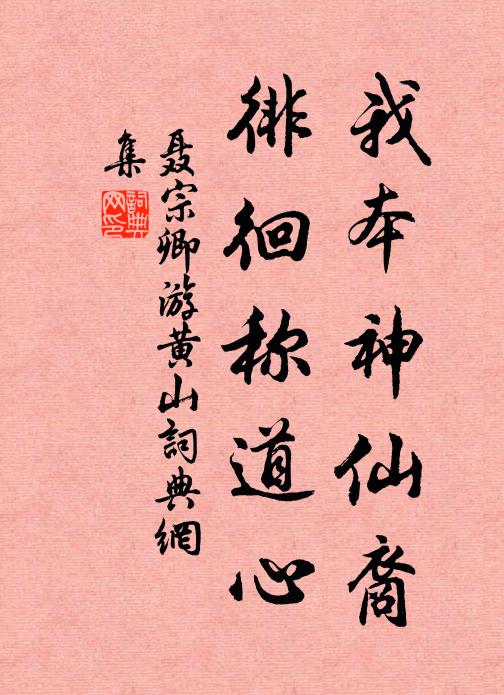 我本神仙裔
徘徊称道心
聂宗卿游黄山詞典網
集
詞典
网印